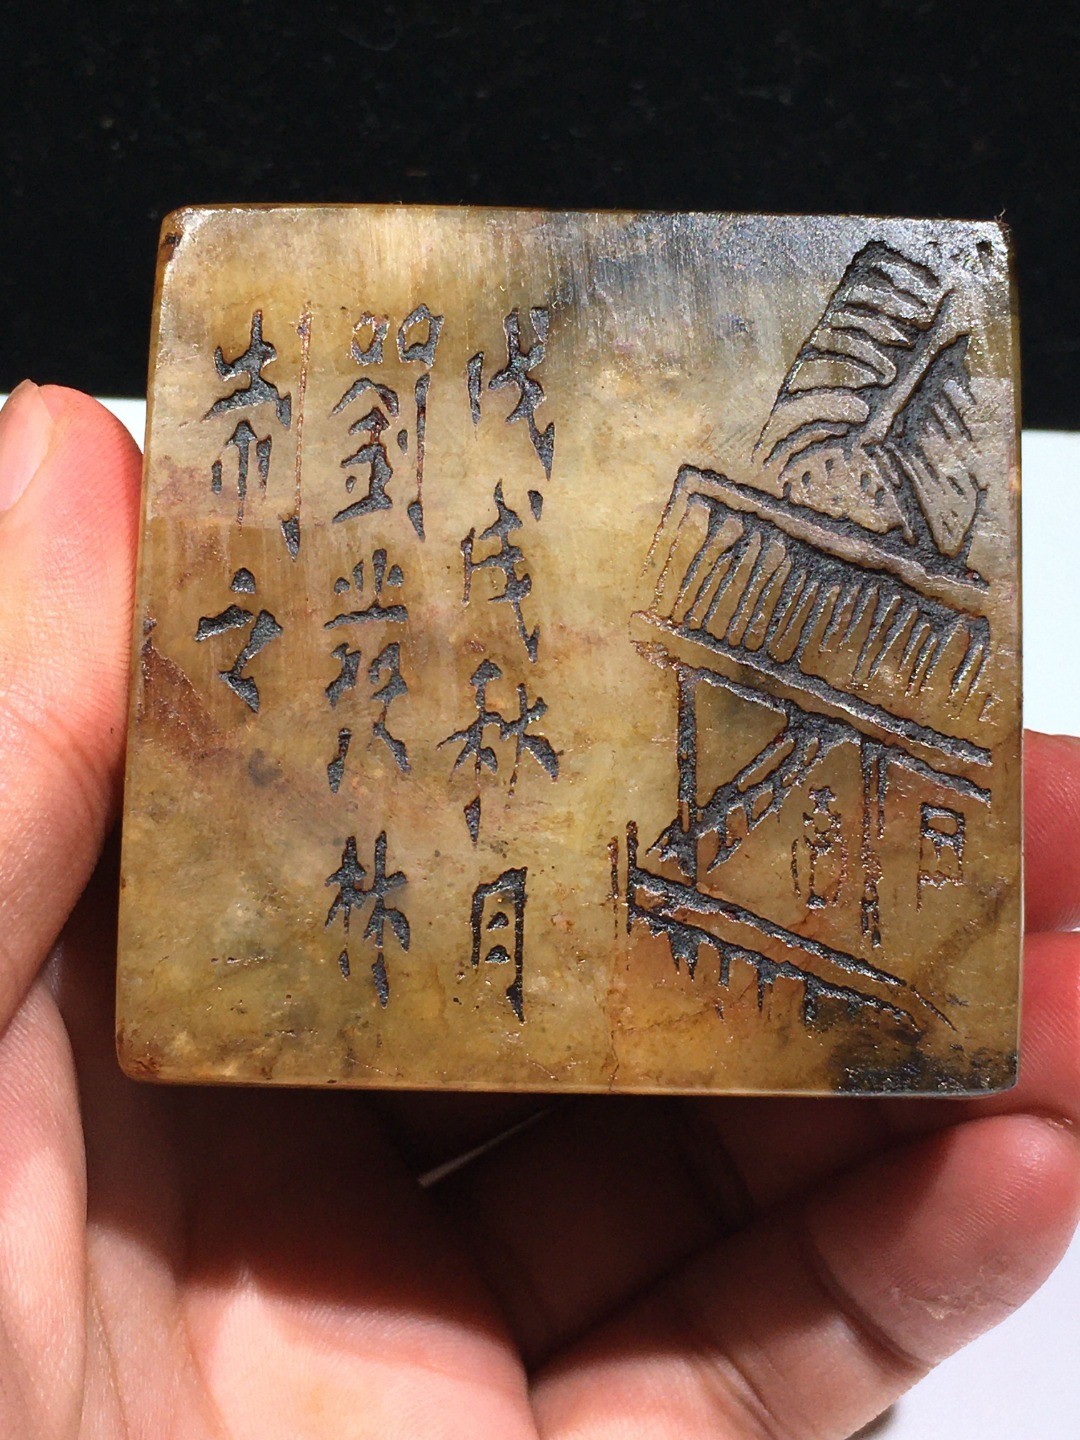 戊戌秋月
劉叢林
制之